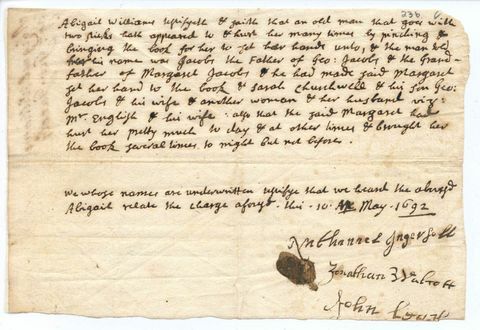 236
Abigail Williams testifyeth & saith that an old man that goes with
two sticks hath appeared to & hurt her many times by pinching &
bringing the book for her to set her hand unto, & the man told
her his name was Jacobs the Father of Geo: Jacobs & the Grand-
father of Margaret Jacobs & he had made said Margaret
set her hand to the book & Sarah Churchwell & his son Geo:
Jacobs & his wife & another woman & her husband viz:
Mr. English & his wife: also that the said Margaret had
hurt her pretty much to day & at other times & brought her
the book several times to night but not before.
We whose names are underwritten testifye that we heard the abovesd
Abigail relate the charge aforsd. this 10. May. 1692
Nathanell Ingersoll
Jonathan Walcott
John